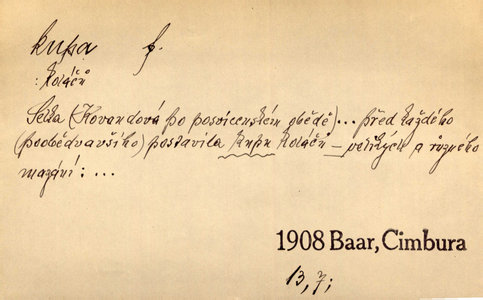 kupa f.
: koláčů
Selka (Kovandová po posvícenském obědě)... před každého
(poobědvavšího) postavila kupu koláčů – velikých a různého
mazání : ...
1908 Baar, Cimbura
13, 7;